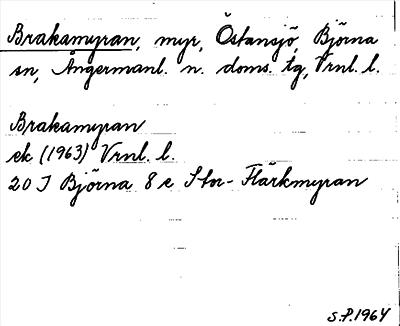 Brakamyran, myr, Östansjö, Björna
sn, Ångermanl. n. doms. tg, Vrnl. l.
Brakamyran
ek (1963) Vrnl. l.
20 J Björna 8 e Stor-Flärkmyran
S.P.1964